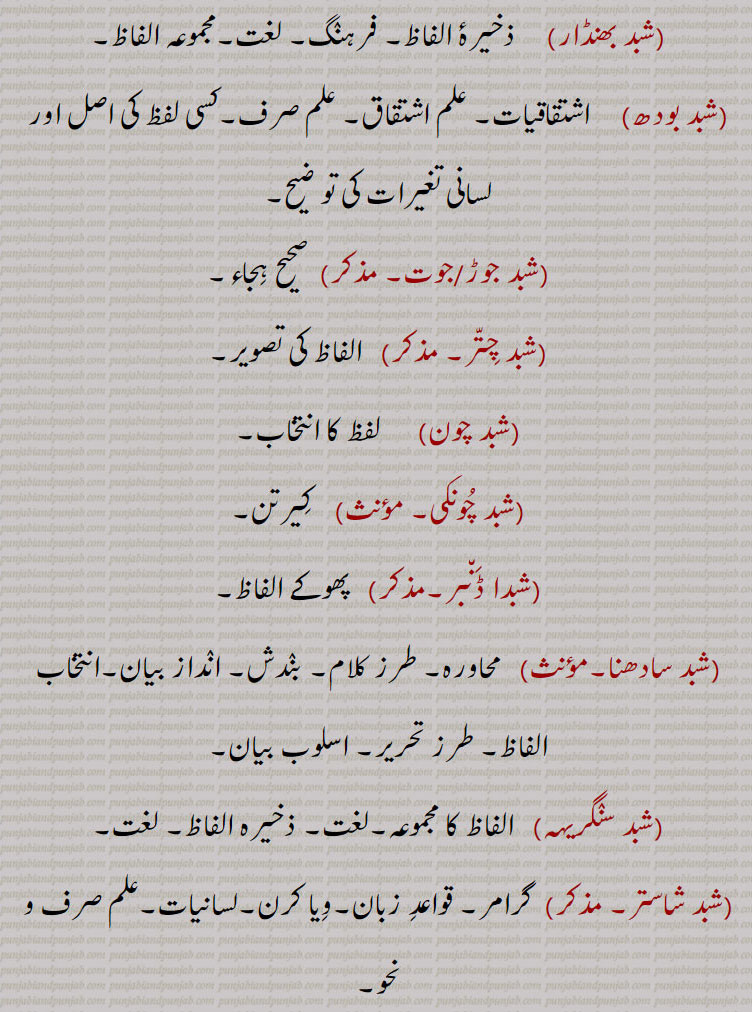 (شبد بھنڈار) ذخیرۂ الفاظ۔ فرہنگ۔ لغت۔ مجموعہ الفاظ۔
(شبد بودھ) اشتقاقیات۔ علم اشتقاق۔ علم صرف۔ کسی لفظ کی اصل اور
لسانی تغیرات کی توضیح۔
(شبد جوڑ/جوت۔ مذکر) صحیح ہِجاء ۔
(شبد چِتّر۔ مذکر) الفاظ کی تصویر۔
(شبد چون) لفظ کا انتخاب۔
(شبد چُونکی۔ مؤنث) کِیرتن۔
(شبدا ڈَنّبر۔ مذکر) پھوکے الفاظ۔
(شبد سادھنا۔ مؤنث) محاورہ۔ طرز کلام۔ بندش۔ انداز بیان۔ انتخاب
الفاظ۔ طرز تحریر۔ اسلوب بیان۔
(شبد سنگریہہ) الفاظ کا مجموعہ۔ لغت۔ ذخیرہ الفاظ۔ لغت۔
(شبد شاستر۔ مذکر) گرامر۔ قواعدِ زبان۔ وِیا کرن۔ لسانیات۔ علم صرف و
نحو۔